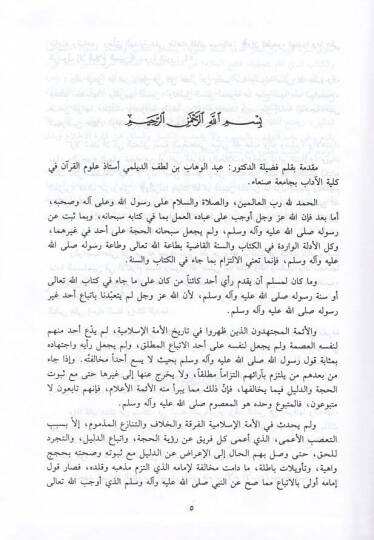 بِسْمِ اللهِ الرَّحْمٰنِ الرَّحِيْمِ
مقدمة بقلم فضيلة الدكتور: عبد الوهاب بن لطف الديلمي أستاذ علوم القرآن في
كلية الآداب بجامعة صنعاء.
الحمد لله رب العالمين، والصلاة والسلام على رسول الله وعلى آله وصحبه،
أما بعد فإن الله عز وجل أوجب على عباده العمل بما في كتابه سبحانه، وبما ثبت عن
رسوله صلى الله عليه وآله وسلم، ولم يجعل سبحانه الحجة على أحد في غيرهما،
وكل الأدلة الواردة في الكتاب والسنة القاضية بطاعة الله تعالى وطاعة رسوله صلى الله
عليه وآله وسلم، فإنما تعني الالتزام بما جاء في الكتاب والسنة.
وما كان لمسلم أن يقدم رأي أحد كائناً من كان على ما جاء في كتاب الله تعالى
أو سنة رسوله صلى الله عليه وآله وسلم، لأن الله عز وجل لم يتعبّدنا باتباع أحد غير
رسوله صلى الله عليه وآله وسلم.
والأئمة المجتهدون الذين ظهروا في تاريخ الأمة الإسلامية، لم يدّع أحد منهم
لنفسه العصمة ولم يجعل لنفسه على أحد الاتباع المطلق، ولم يجعل رأيه واجتهاده
بمثابة قول رسول الله صلى الله عليه وآله وسلم بحيث لا يسع أحداً مخالفتُه. وإذا جاء
من بعدهم من يلتزم بآرائهم التزاماً مطلقاً، ولا يخرج عنها إلى غيرها حتى مع ثبوت
الحجة والدليل فيما يخالفها، فإنّ ذلك مما يبرأ منه الأئمة الأعلام، فإنهم تابعون لا
متبوعون، فالمتبوع وحده هو المعصوم صلى الله عليه وآله وسلم.
ولم يحدث في الأمة الإسلامية الفرقة والخلاف والتنازع المذموم، إلاّ بسبب
التعصب الأعمى، الذي أعمى كل فريق عن رؤية الحجة، واتباع الدليل، والتجرد
للحق، حتى وصل بهم الحال إلى الإعراض عن الدليل مع ثبوته وصحته بحجج
واهية، وتأويلات باطلة، ما دامت مخالفة لإمامه الذي التزم مذهبه وقلده، فصار قول
إمامه أولى بالاتباع مما صح عن النبي صلى الله عليه وآله وسلم الذي أوجب الله تعالى
٥